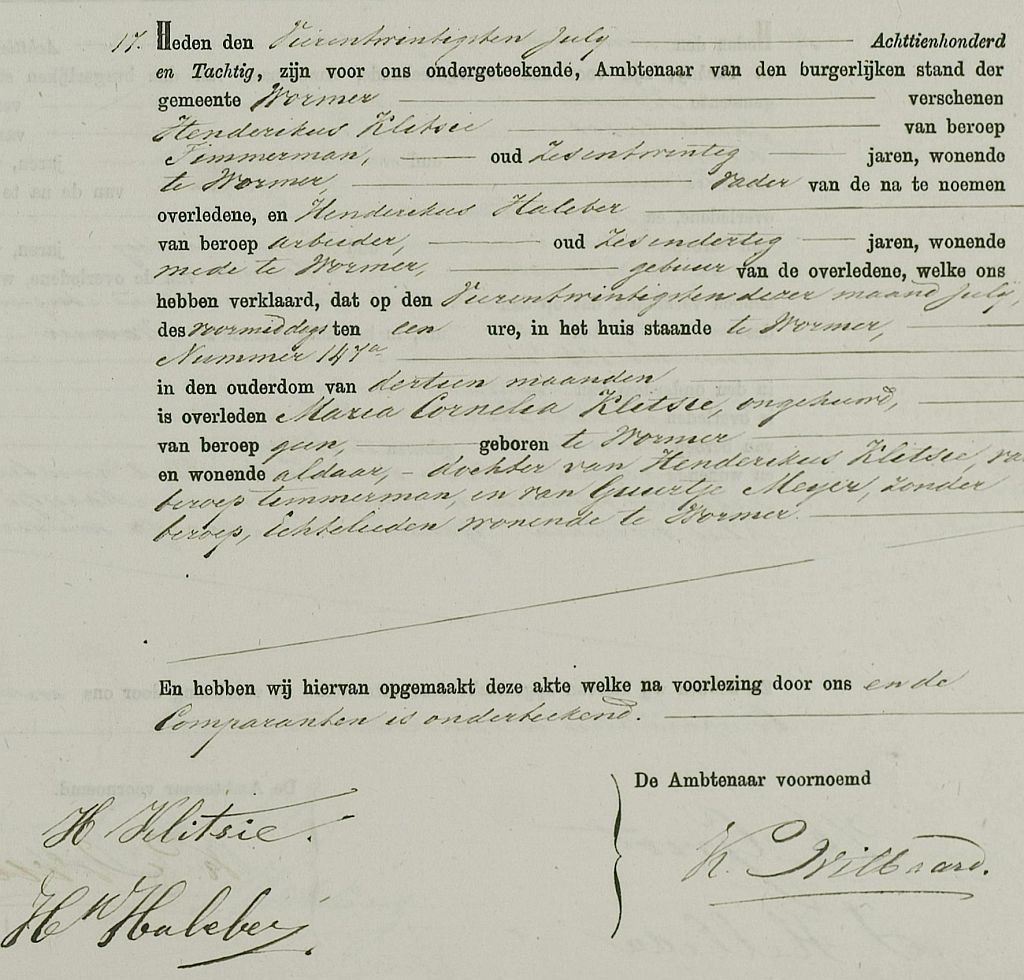 17. Heden den Vierentwintigsten July Achttienhonderd
en Tachtig, zijn voor ons ondergeteekende, Ambtenaar van den burgerlijken stand der
gemeente Wormer verschenen
Henderikus Klitsie van beroep
Timmerman, oud Zesentwenteg jaren, wonende
te Wormer, vader van de na te noemen
overledene, en Henderikus Haleber
van beroep arbeider, oud Zesendertig jaren, wonende
mede te Wormer, gebuur van de overledene, welke ons
hebben verklaard, dat op den Vierentwintigsten dezer maand July,
des voormiddags ten een ure, in het huis staande te Wormer,
Nummer 147a
in den ouderdom van dertien maanden
is overleden Maria Cornelia Klitsie, ongehuwd,
van beroep geen, geboren te Wormer
en wonende aldaar, - dochter van Henderikus Klitsie, va
beroep timmerman, en van Guurtje Meyer, zonder
beroep, Echtelieden wonende te Wormer.
En hebben wij hiervan opgemaakt deze akte welke na voorlezing door ons en de
Comparanten is onderteekend.
De Ambtenaar voornoemd
H Klitsie.
K.
Hk Haleber